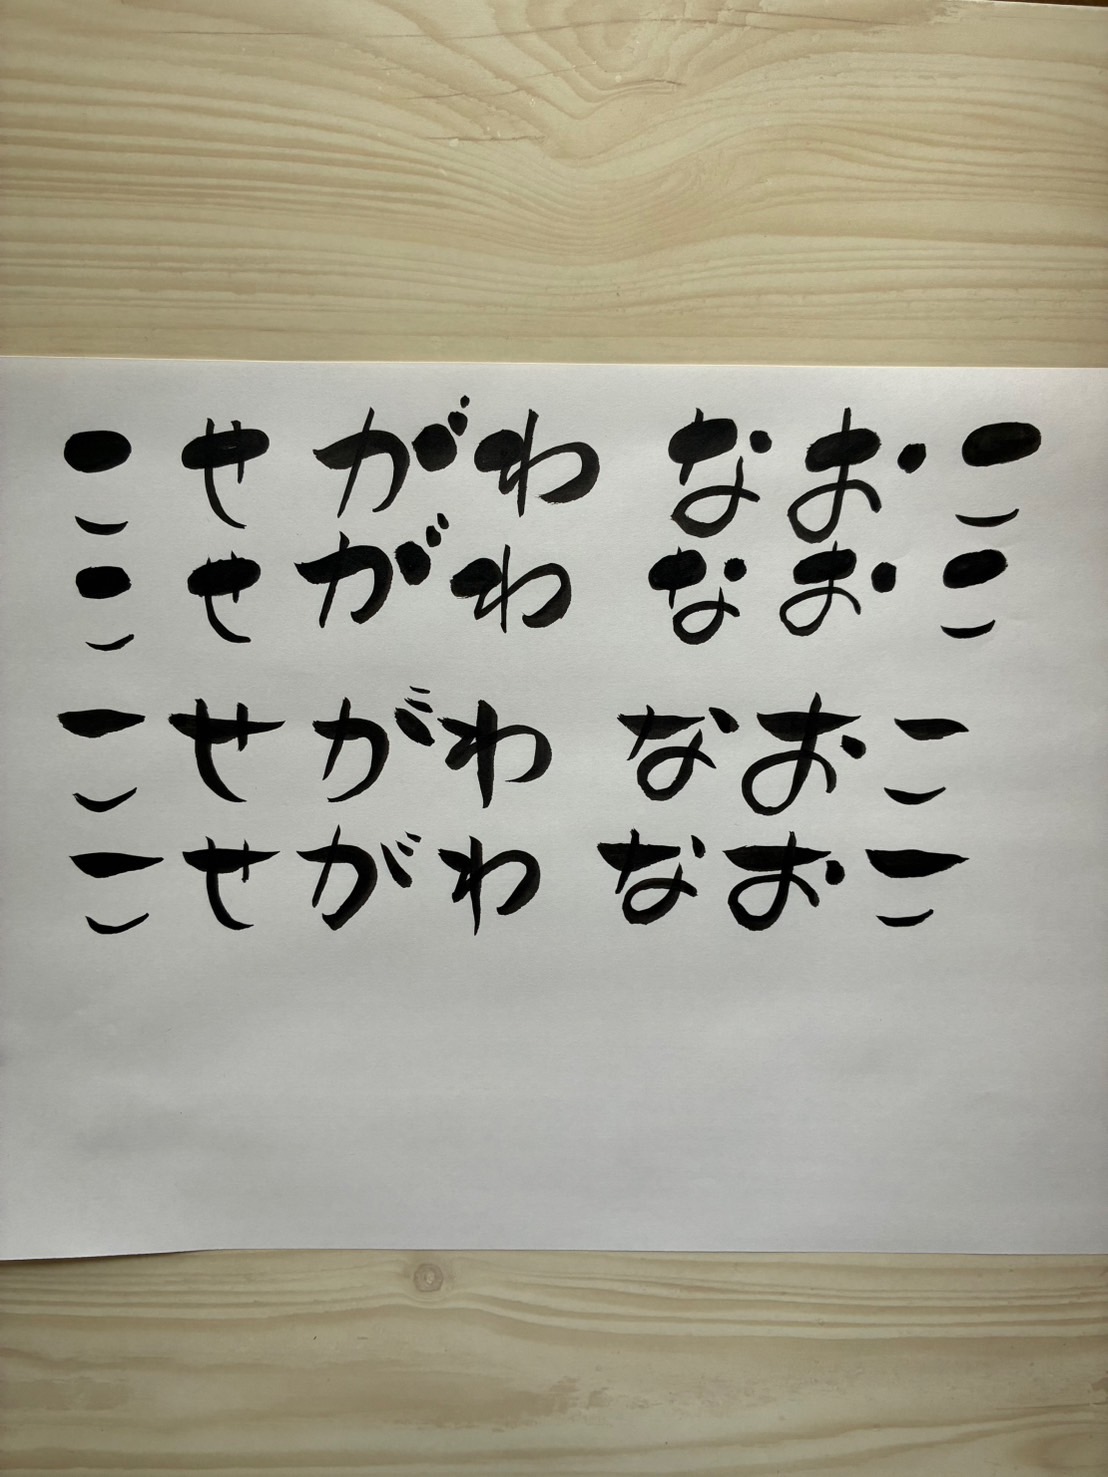 こせがわ なおこ
こせがわ なおこ
こせがわ なおこ
こせがわ なおこ